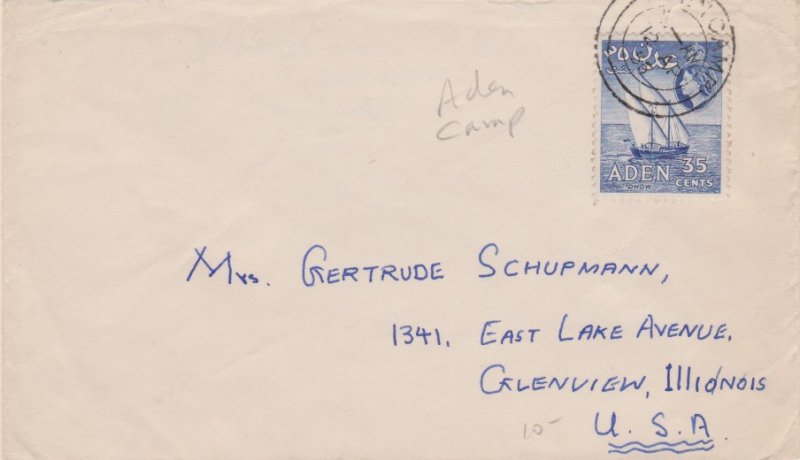 Aden
Camp
عدن
ADEN 35
CENTS
DHOW
Mrs. GERTRUDE SCHUPMANN,
1341, EAST LAKE AVENUE,
GLENVIEW, IllIONOIS
10-
U. S. A.